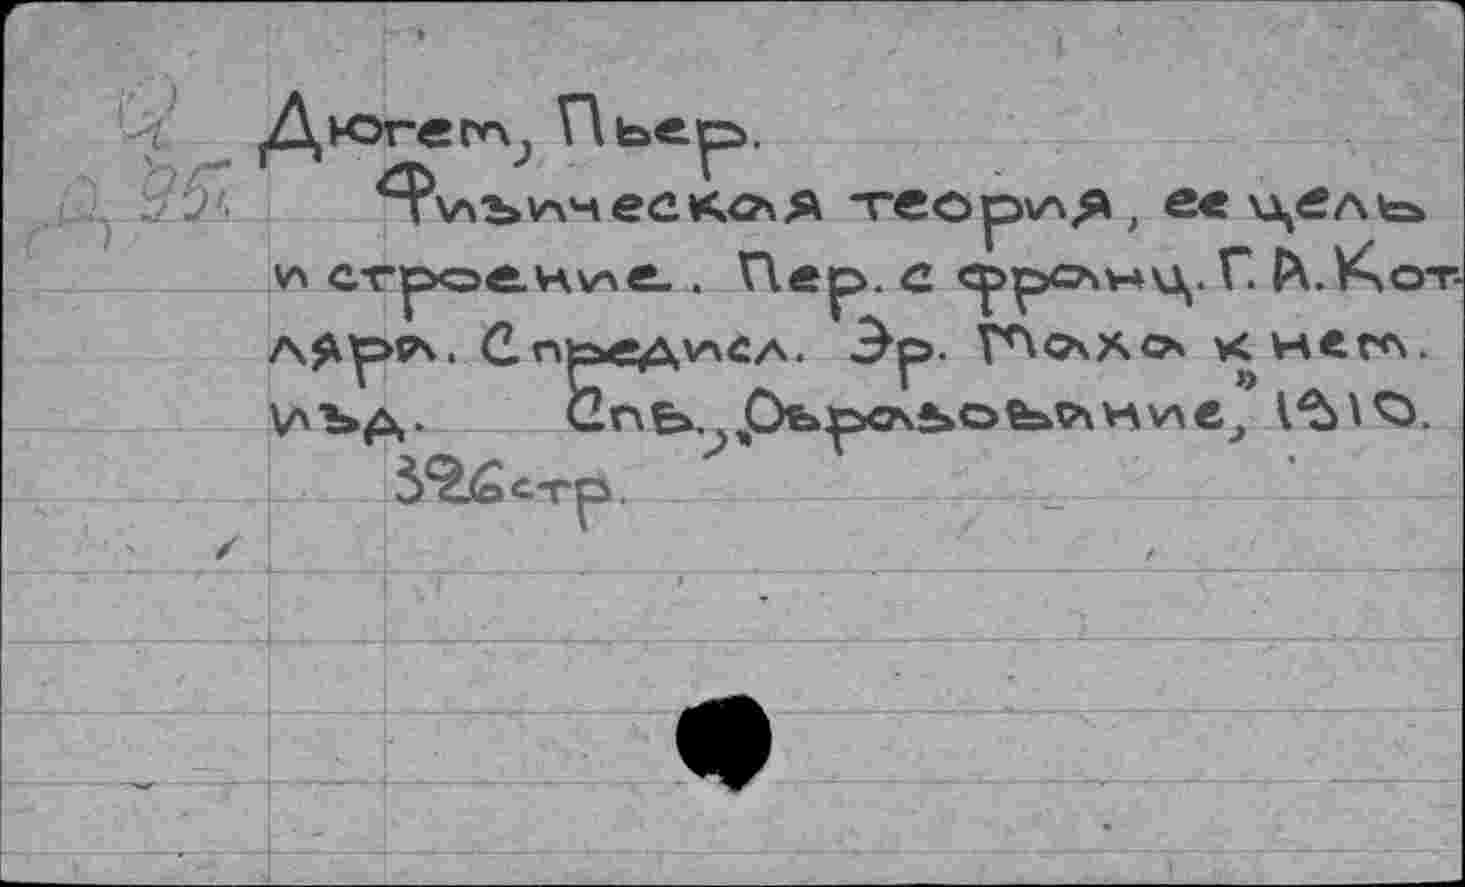 Дюгем, Пьер.
Физическая теория, ее цель
и строение. . Пер. с франц. Г. А. Кот-
ляра. С предисл. Эр. Маха к нем.
изд. Спб., „Образование", 1910.
326 стр.